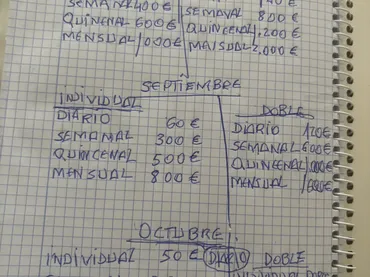 SEMANAL 400 €
QUINCENAL 600 €
MENSUAL 1000 €
SEMANAL 800 €
QUINCENAL 1.200 €
2.000 €
SEPTIEMBRE
INDIVIDUAL
DIARIO 60 €
SEMAMAL 300 €
QUINCENAL 500 €
MENSUAL 800 €
DOBLE
DIARIO 120 €
SEMANAL 600 €
QUINCENAL 1000 €
MENSUAL 1600 €
OCTUBRE
INDIVIDUAL 50 € DIARIO DOBLE